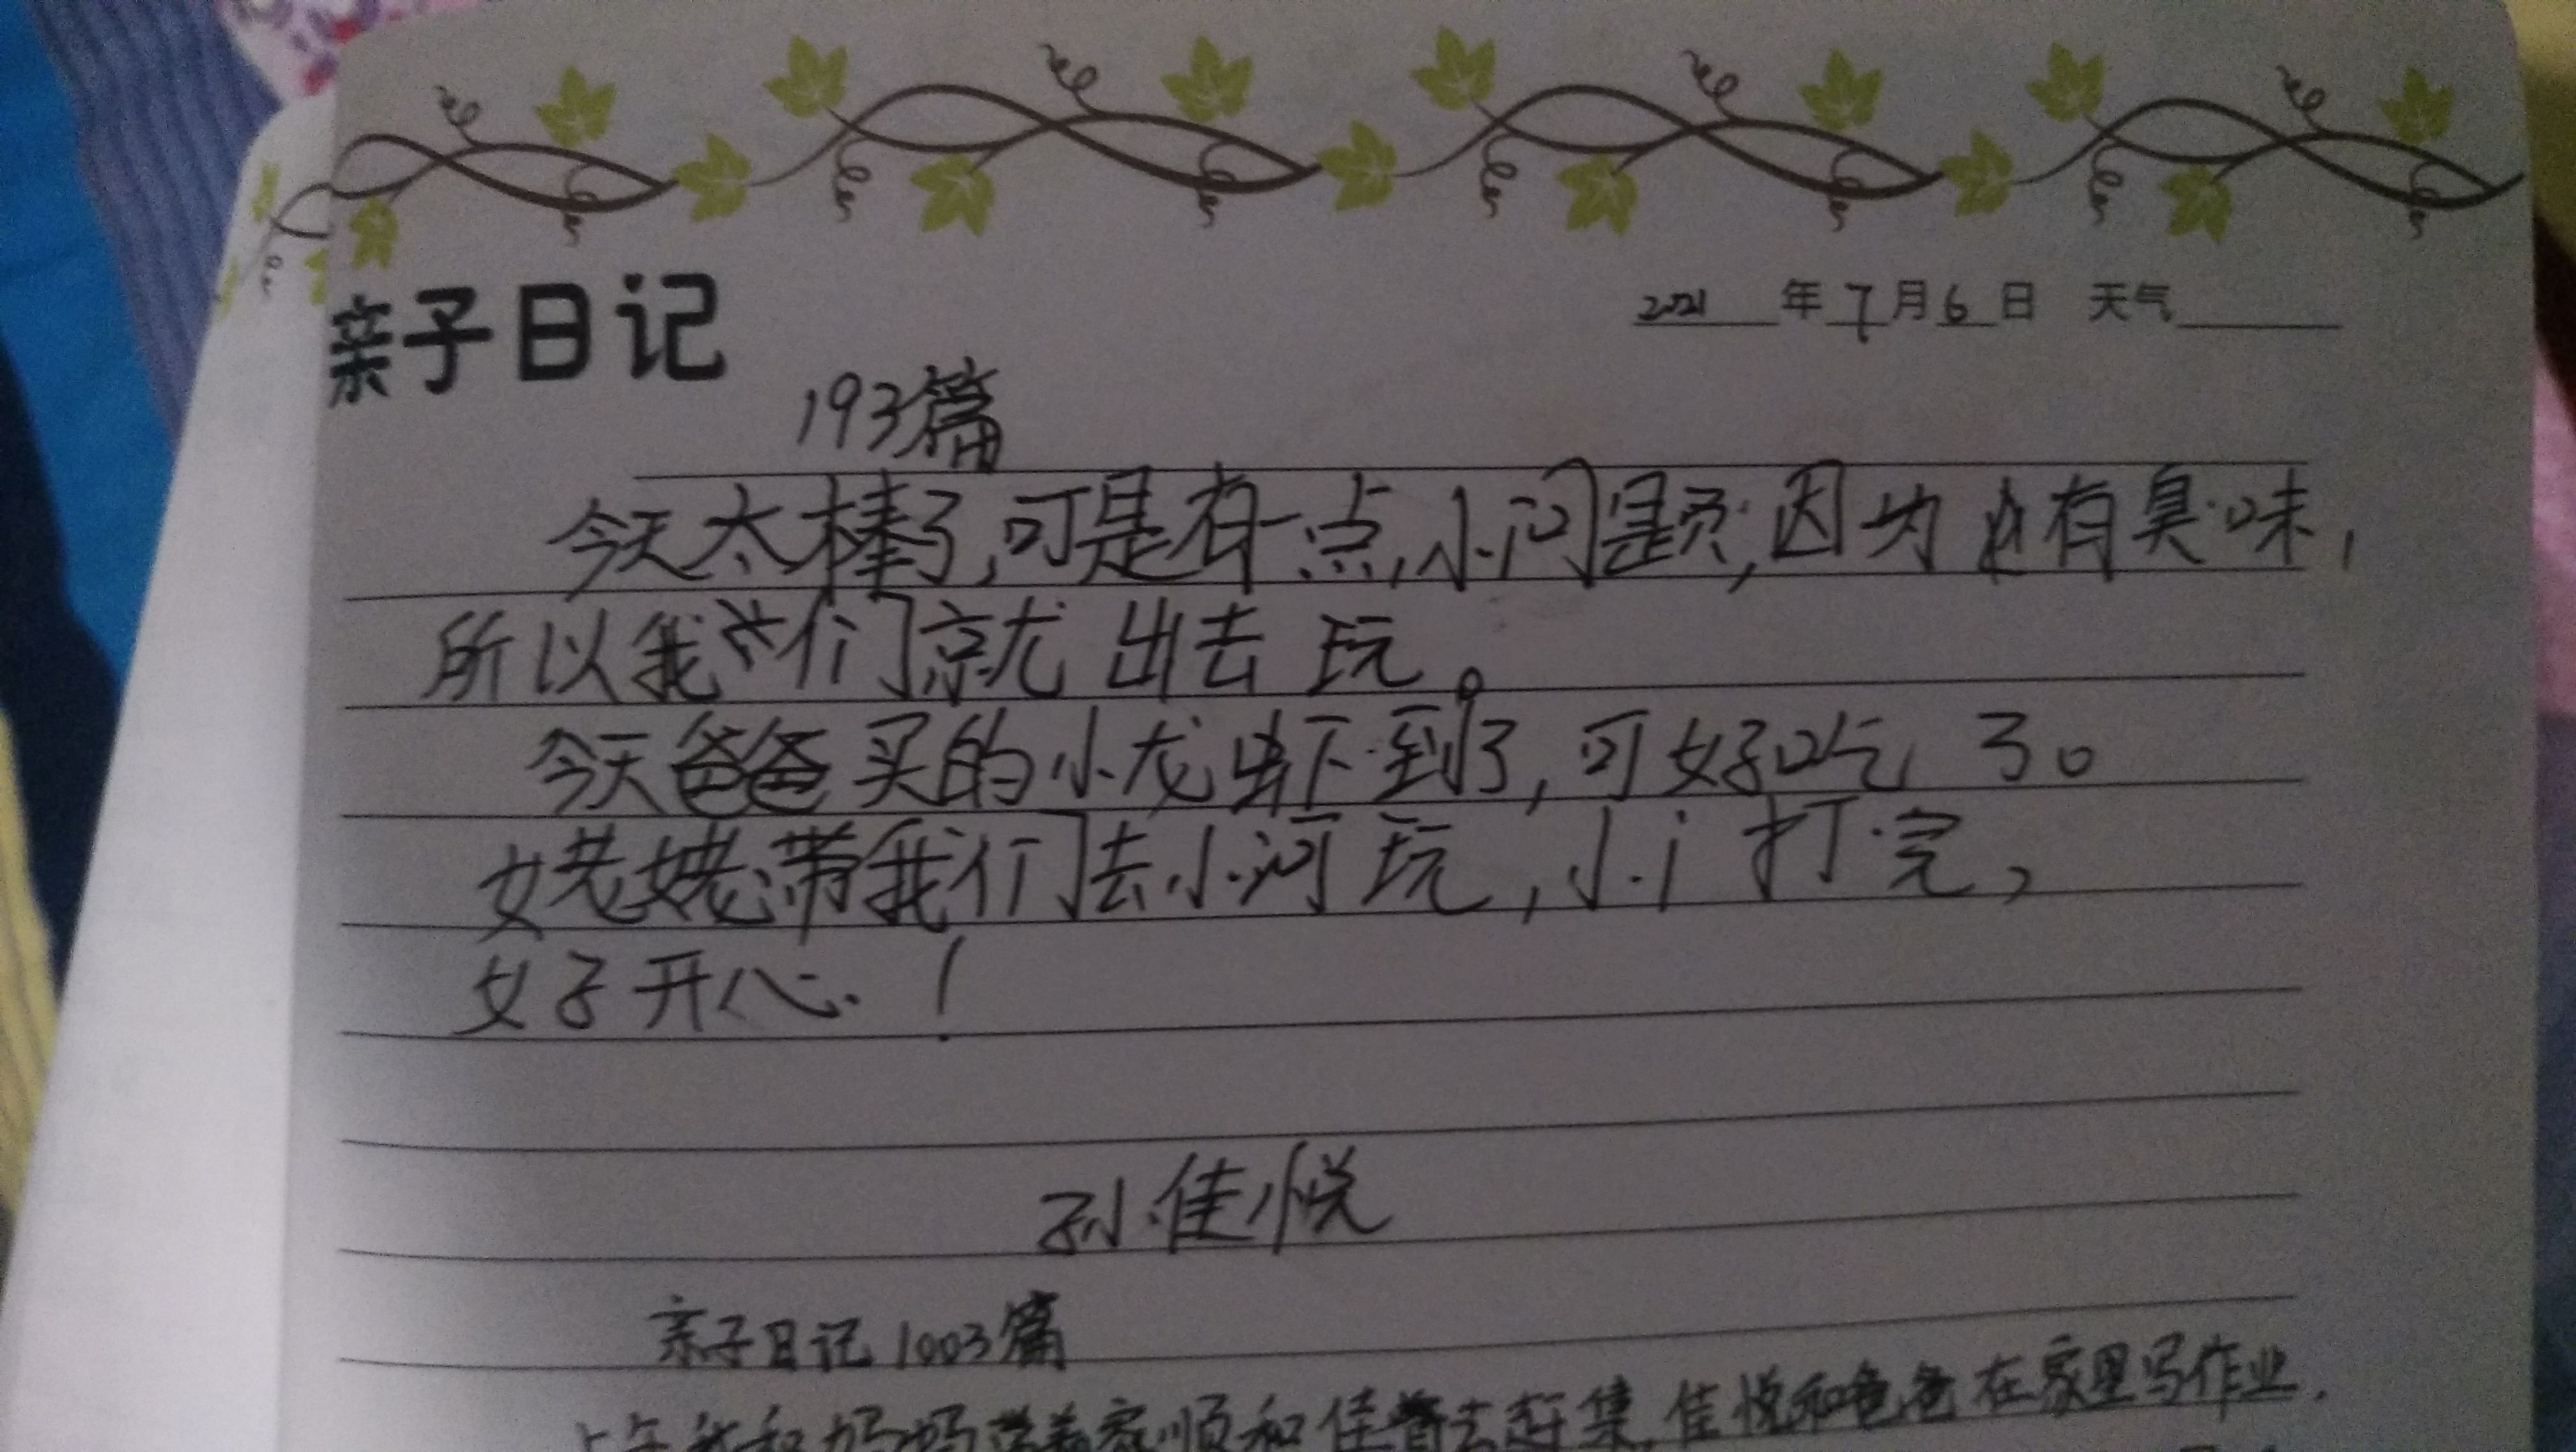 亲子日记
2021年7月6日 天气
193篇
今天太棒了,可是有一点小问题,因为有臭味,
所以我们就出去玩。
今天爸爸买的小龙虾到了,可好吃了。
姥姥带我们去小河玩,小打完,
好开心!
孙佳悦
亲子日记1003篇
上午我和妈妈带着家顺和佳去赶集,佳悦和爸爸在家里写作业.